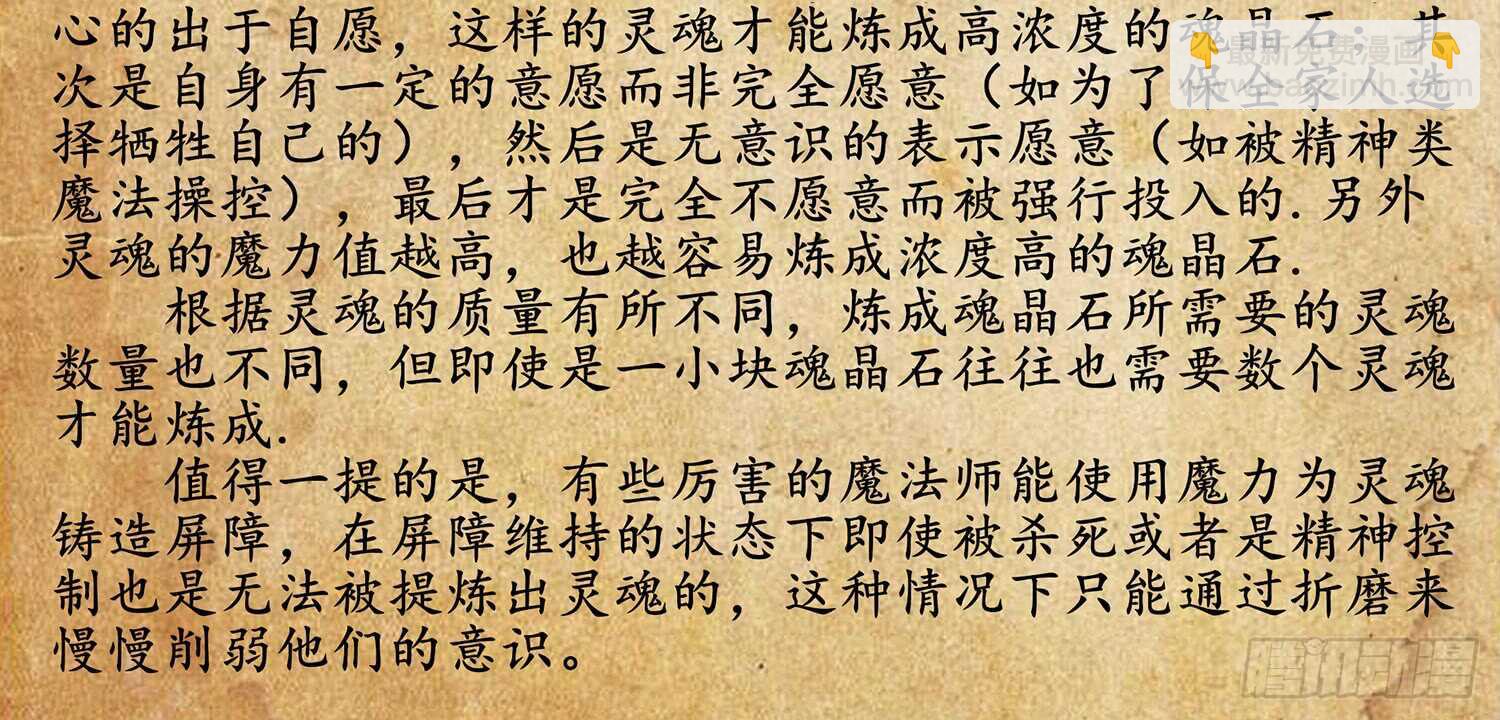 心的出于自愿，这样的灵魂才能炼成高浓度的魂晶石；其
次是自身有一定的意愿而非完全愿意（如为了保全家人选
择牺牲自己的），然后是无意识的表示愿意（如被精神类
魔法操控），最后才是完全不愿意而被强行投入的.另外
灵魂的魔力值越高，也越容易炼成浓度高的魂晶石.
根据灵魂的质量有所不同，炼成魂晶石所需要的灵魂
数量也不同，但即使是一小块魂晶石往往也需要数个灵魂
才能炼成.
值得一提的是，有些厉害的魔法师能使用魔力为灵魂
铸造屏障，在屏障维持的状态下即使被杀死或者是精神控
制也是无法被提炼出灵魂的，这种情况下只能通过折磨来
慢慢削弱他们的意识。
👇最新免费漫画👇
腾讯动漫